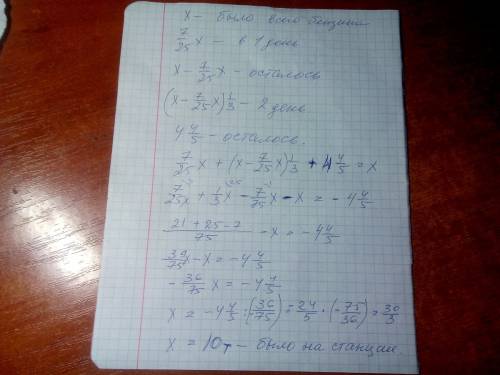 x - было всего бензина
7/25 x - в 1 день
x - 7/25 x - осталось
(x - 7/25 x) 1/3 - 2 день
4 4/5 - осталось.
7/25 x + (x - 7/25 x) 1/3 + 4 4/5 = x
7/25 x + 1/3 x - 7/75 x - x = - 4 4/5
21 + 25 - 7 / 75 - x = - 4 4/5
39/75 x - x = - 4 4/5
- 36/75 x = - 4 4/5
x = - 4 4/5 : (- 36/75) = - 24/5 · (- 75/36) = 30/3
x = 10т - было на станции.